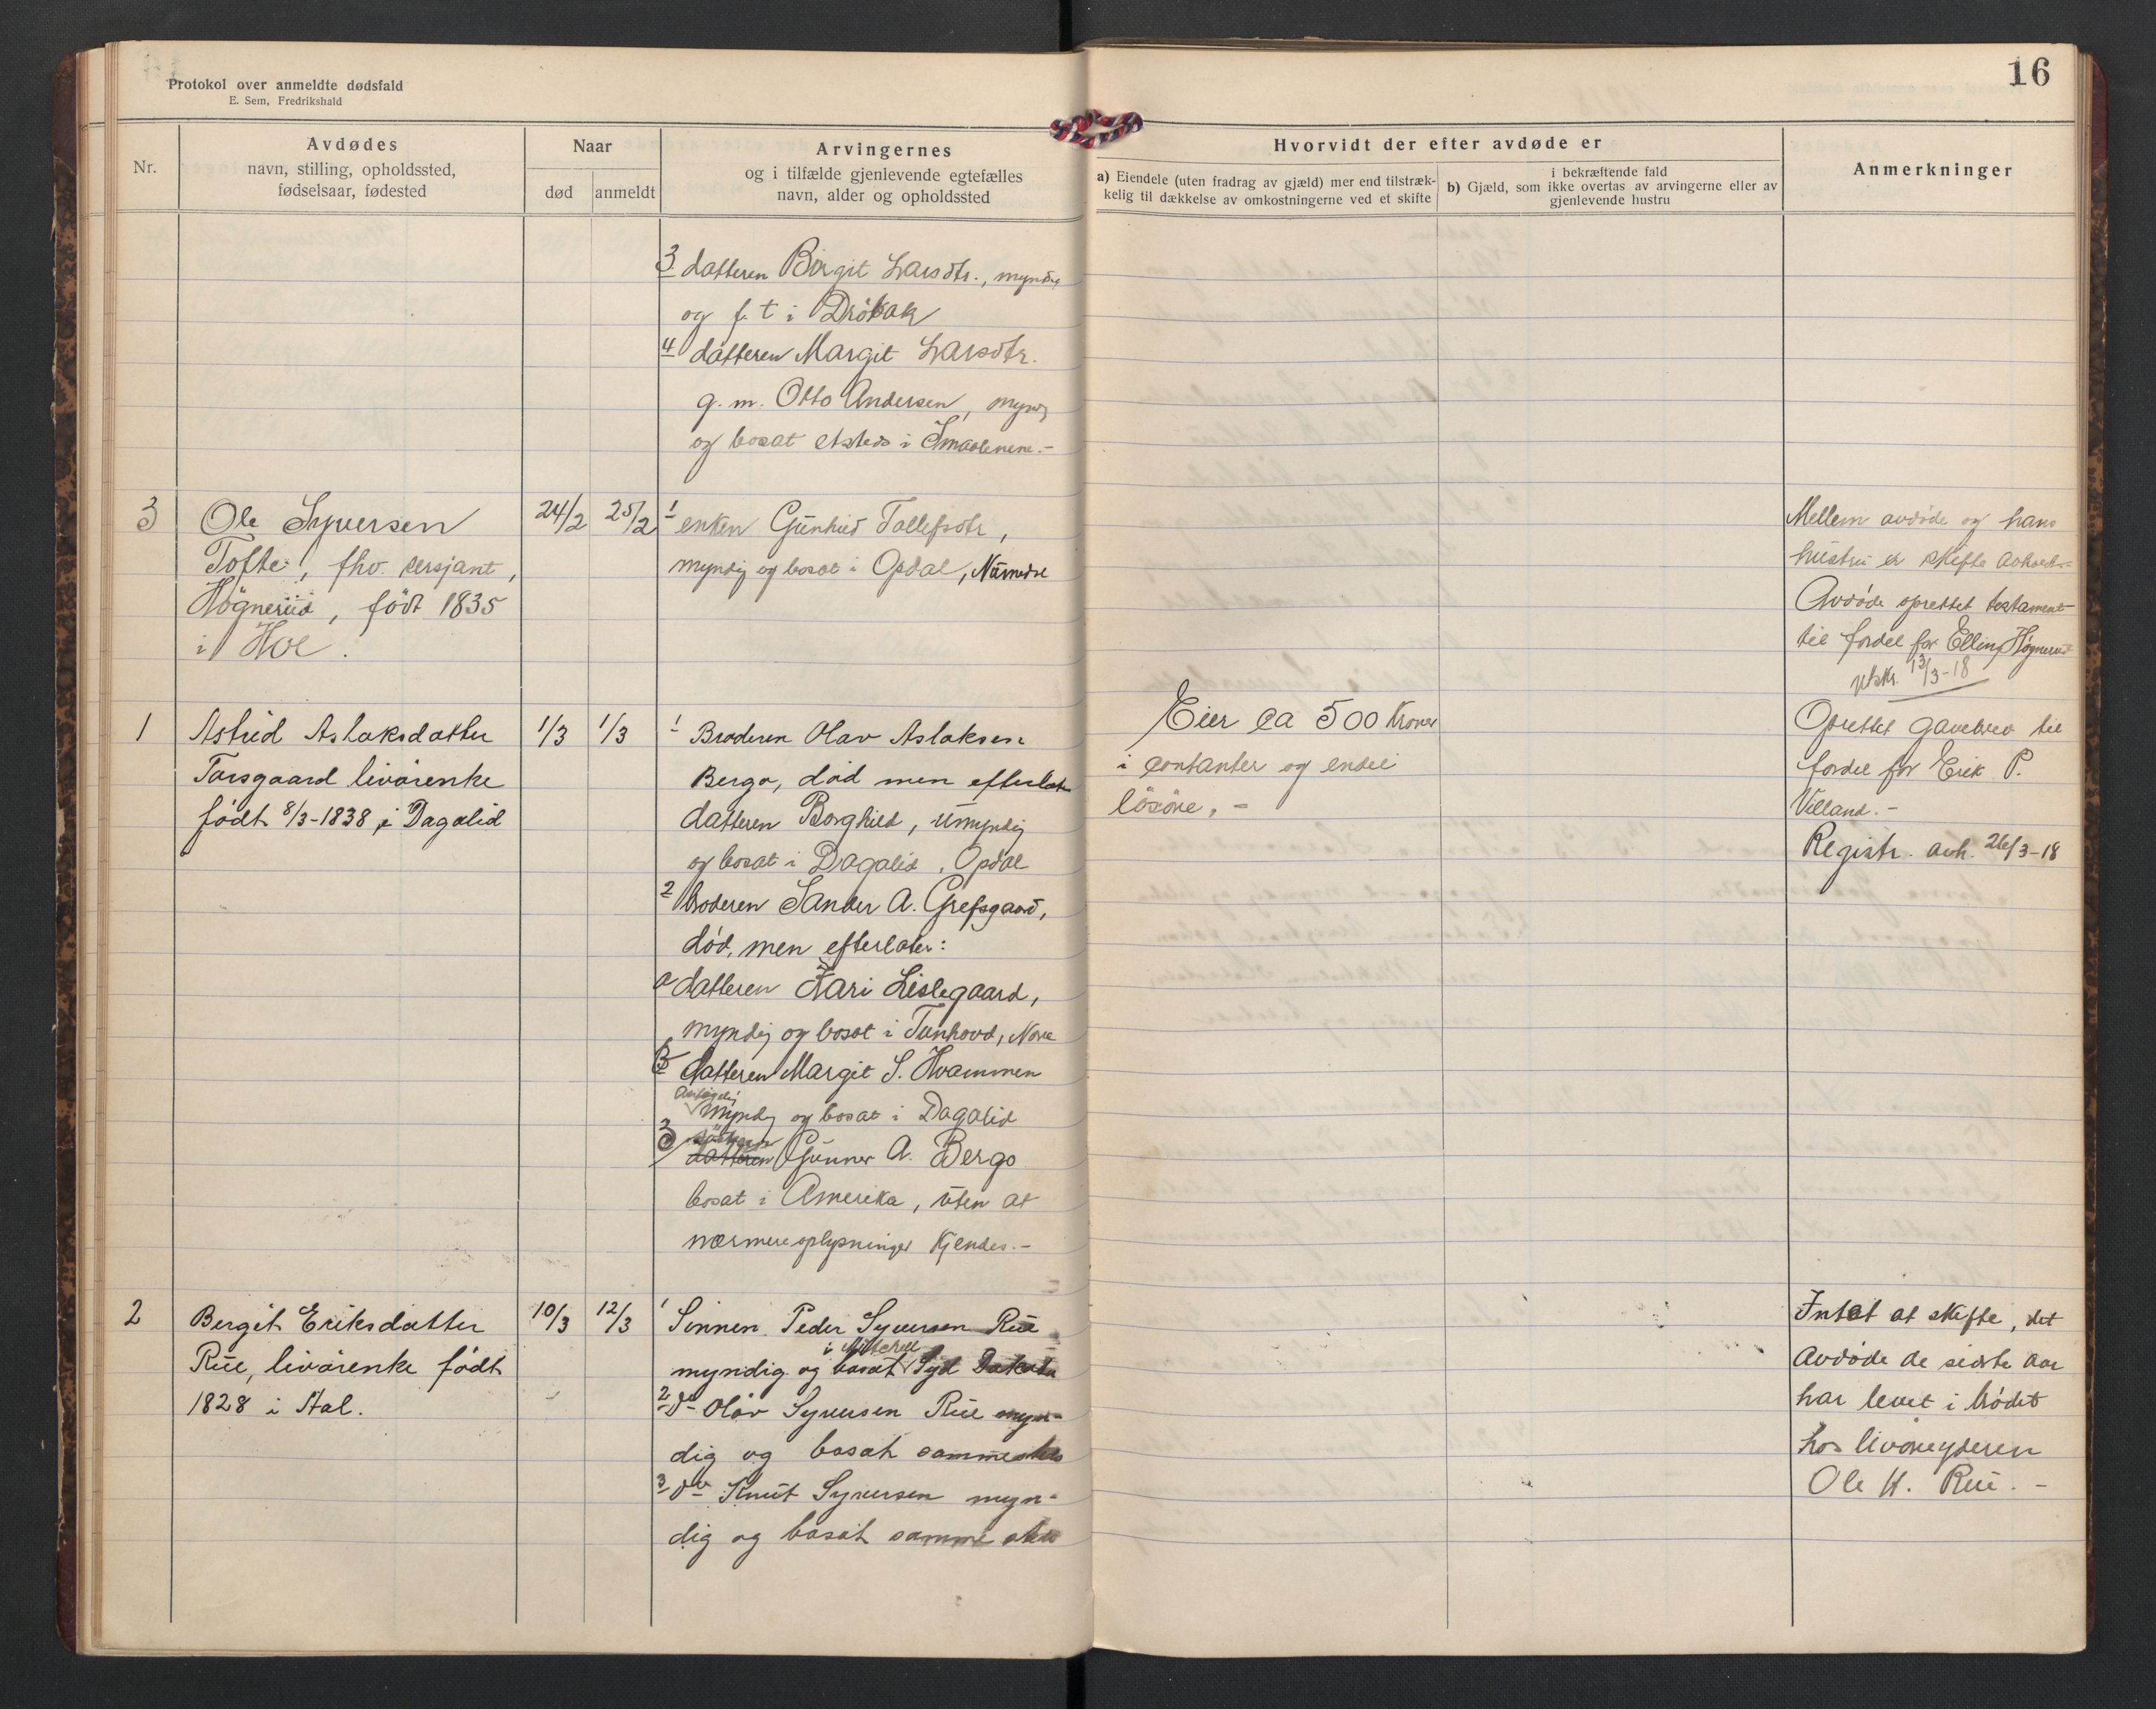 Protokol over anmeldte dødsfald
E. Sem, Fredrikshald
16
Nr.
Avdødes
navn, stilling, opholdssted,
fødselsaar, fødested
Naar
død
anmeldt
Arvingernes
og i tilfælde gjenlevende egtefælles
navn, alder og opholdssted
Hvorvidt der efter avdøde er
a) Eiendele (uten fradrag av gjæld) mer end tilstræk-
kelig til dækkelse av omkostningerne ved et skifte
i bekræftende fald
b) Gjæld, som ikke overtas av arvingerne eller av
gjenlevende hustru
Anmerkninger
3 datteren Birgit Larsdtr., myndig
og f. t i Dröbak
4 datteren Margit Larsdtr.
g. m. Otto Andersen, myndig
og bosat etsteds i Smaalenene.-
3
Ole Syversen
Tofte, fhv. sersjant,
Högnerud, født 1835
i Hol.
24/2
25/2
1 enken Gunhild Tollefsdtr,
myndig og bosat i Opdal, Numedal
Mellem avdøde og hans
hustru er skifte avholdt.-
Avdøde oprettet testament
til fordel for Elling Högnerud
utskr. 13/3-18
1
Astrid Aslaksdatter
Torsgaard livörenke
født 8/3-1838 i Dagalid
1/3
1/3
1 Broderen Olav Aslaksen
Bergo, död men efterlater
datteren Borghild, umyndig
og bosat i Dagalid, Opdal
2 broderen Sander A. Grefsgaard,
död, men efterlater:
a datteren Kari Lislegaard,
myndig og bosat i Tunhovd, Nore
b datteren Margit S. Hvammen
myndig og bosat i Dagalid
3 søsteren
datteren Gunner A. Bergo
bosat i Amerika, uten at
nærmere oplysninger kjendes.-
Eier ca 500 Kroner
i contanter og endel
lösöre. -
Oprettet gavebrev til
fordel for Erik P.
Villand.-
Registr. avh. 26/3-18
2
Bergit Eriksdatter
Rue, livörenke født
1828 i Aal.
10/3
12/3
1 Sönnen Peder Syversen Rue
i Mitchell
myndig og bosat Syd Dakota
2 do Olav Syversen Rue myn-
dig og bosat sammesteds
3 do Knut Syversen myn-
dig og bosat samme sted
Intet at skifte, det
avdøde de sidste aar
har levet i brødet
hos livöreyderen
Ole H. Rue. -